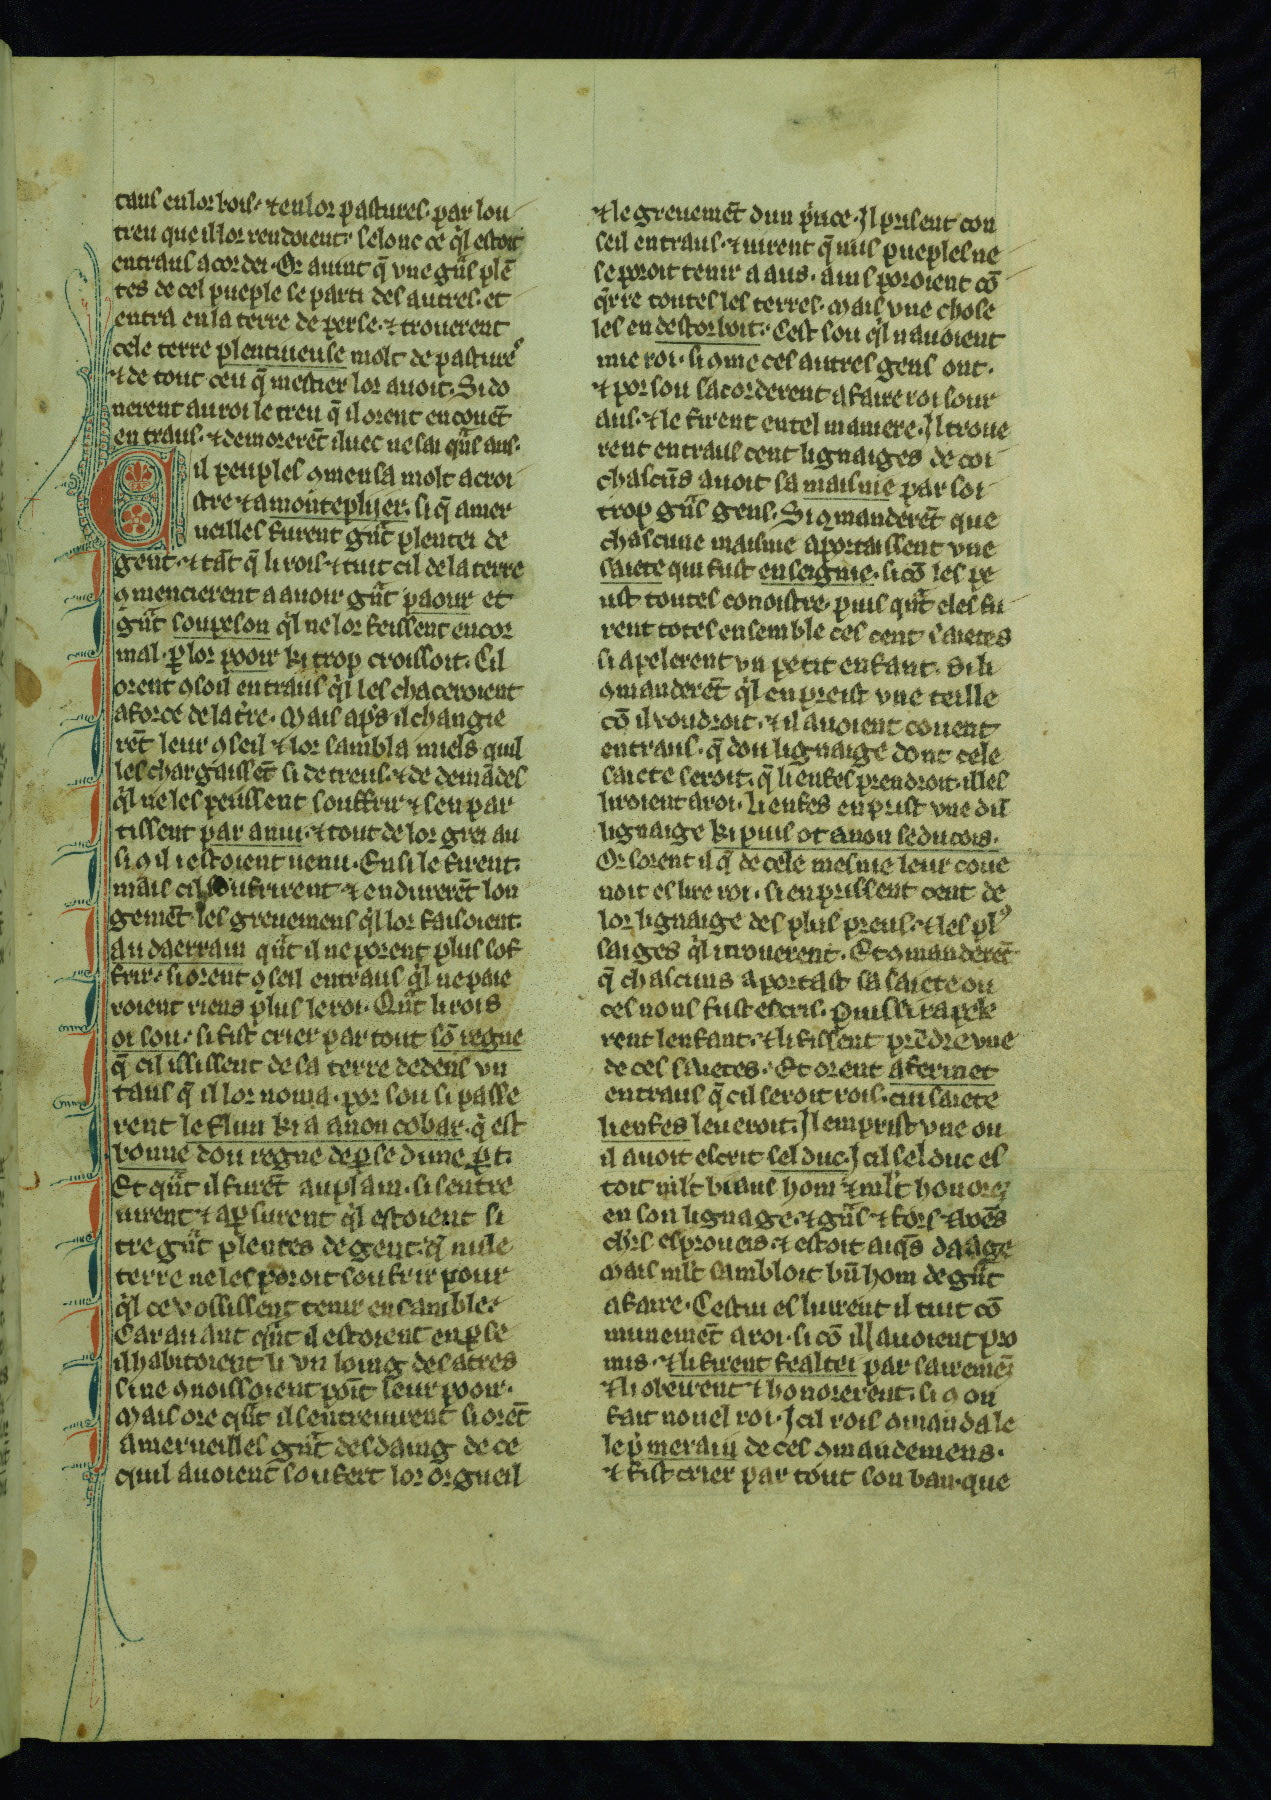 4
taus en lor bois· ⁊ en lor pastures· par lou
treu que il lor rendoient· selonc ce q̃l estoit
entraus acordei· Or auint q̃ vne gñs plẽ
tes de cel pueple se parti des autres· et
entra en la terre de perse· ⁊ trouerent
cele terre plentiueuse molt de pasture᷒
⁊ de tout ceu q̃ mestier lor auoit· Si do
nerent au roi le treu q̃ il orent en couẽt
en traus· ⁊ demorerẽt iluec ne sai qũs ans·
Cil peuples ꝯmensa molt a croi
stre ⁊ a mouteplijer· si q̃ a mer
ueilles furent gñt plentei de
gent· ⁊ tãt q̃ li rois ⁊ tuit cil de la terre
ꝯmencierent a auoir gñt paour et
gñt soupeson q̃l ne lor feissent encor
mal· ꝑ lor pooir ki trop croissoit· Cil
orent ꝯsoil entraus q̃l les chaceroient
a force de la t̃re· Mais ap̃s il changie
rẽt leur ꝯseil ⁊ lor sambla miels quil
les chargaissẽt si de treus· ⁊ de demãdes
q̃l ne les peussent souffrir ⁊ sen par
tissent par anui· ⁊ tout de lor grei au
si ꝯ il i estoient uenu· Ensi le firent·
mais cil soufrirent ⁊ endurerẽt lon
gemẽt· les greuemens q̃l lor faisoient·
au daerrain qñt il ne porent plus sof
frir· si orent ꝯseil entraus q̃l ne paie
roient riens plus le roi· Qñt li rois
oi sou· si fist crier par tout sõ regne
q̃ cil ississent de sa terre dedens vn
tans q̃ il lor noma· por sou si passe
rent le flun ki a a non cobar· q̃ est
bonne dou regne de ꝑse dune ꝑt·
Et qñt il furẽt au plain· si sentre
uirent ⁊ aꝑsurent q̃l estoient si
tre gñt plentes de gent· q̃ nule
terre ne les poroit soufrir pour
q̃l ce vossissent tenir ensamble·
Car auant qñt il estoient en ꝑse
il habitoient li vn loing des atres
si ne ꝯnoissoient poĩt leur pooir·
Mais ore qñt il sentreuirent si orẽt
a merueilles gñt desdaing de ce
quil auoient soufert lor orgueil
⁊ le greuemẽt dun p̃nce· Il prisent con
seil entraus· ⁊ uirent q̃ nuls pueples ne
se poroit tenir a aus· ains poroient cõ
q̃rre toutes les terres· Mais vne chose
les en destorboit· Cest sou q̃l nauoient
mie roi· si ꝯme ces autres gens ont·
⁊ por sou sacorderent a faire roi sour
aus· ⁊ le firent en tel maniere· Il troue
rent entraus cent lignaiges de coi
chascũs auoit sa maisnie par soi
trop gñs gens· Si ꝯmanderẽt que
chascune maisnie aportaissent vne
saiete qui fust enseignie· si cõ les pe
ust toutes conoistre· puis qñt eles fu
rent totes ensemble ces cent saietes
si apelerent vn petit enfant· si li
ꝯmanderẽt q̃l en preist vne teille
cõ il voudroit· ⁊ il auoient couent
entraus· q̃ dou lignaige dont cele
saiete seroit· q̃ li enfes prendroit· il les
liroient a roi· li enfes en prist vne dũ
lignaige ki puis ot a non seducois·
Or sorent il q̃ de cele mesnie leur coue
noit es lire roi· si en prissent cent de
lor lignaige des plus preus· ⁊ les pl᷒
saiges q̃l i trouerent· Et ꝯmanderẽt
q̃ chascuns aportast sa saiete ou
ces nons fust escris· Puis si rapele
rent lenfant· ⁊ li fissent prẽdre vne
de ces saietes· Et orent afermet
entraus q̃ cil seroit rois· cui saiete
li enfes leueroit· Il em prist vne ou
il auoit escrit sel duc· J cil sel duc es
toit ml̃t biaus hom ⁊ ml̃t honorez
en son lignage· ⁊ gñs ⁊ fors ⁊ boẽs
chr̃s esproueis· ⁊ estoit aiq̃s daage
Mais ml̃t sambloit bñ hom de gñt
afaire· Cestui es luirent il tuit cõ
munemẽt a roi· si cõ il lauoient pro
mis· ⁊ li firent fealtei par sairemẽt
⁊ li obeirent ⁊ honorerent· si ꝯ on
fait nouel roi· J cil rois ꝯmanda le
le p̃merain de ces ꝯmandemens·
⁊ fist crier par tout son ban· que